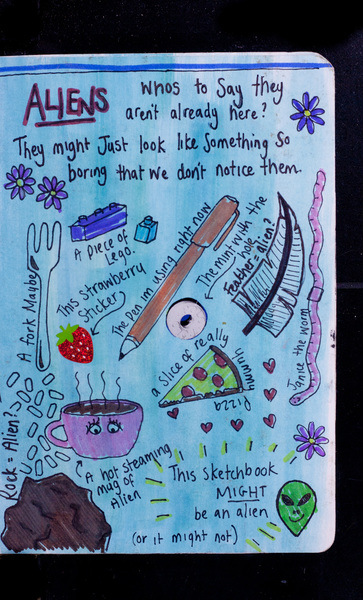 ALIENS
Whos to Say they
aren't already here?
They might Just look like Something So
boring that we don't notice them.
A Piece of
Lego.
A fork Maybe
This Strawberry
Sticker
The pen im using right now
The mint with the
hole
feather = alien?
Janice the worm
a slice of really
yummy
Pizza
Rock = Alien?
A hot steaming
mug of
Alien
This Sketchbook
MIGHT
be an alien
(or it might not)